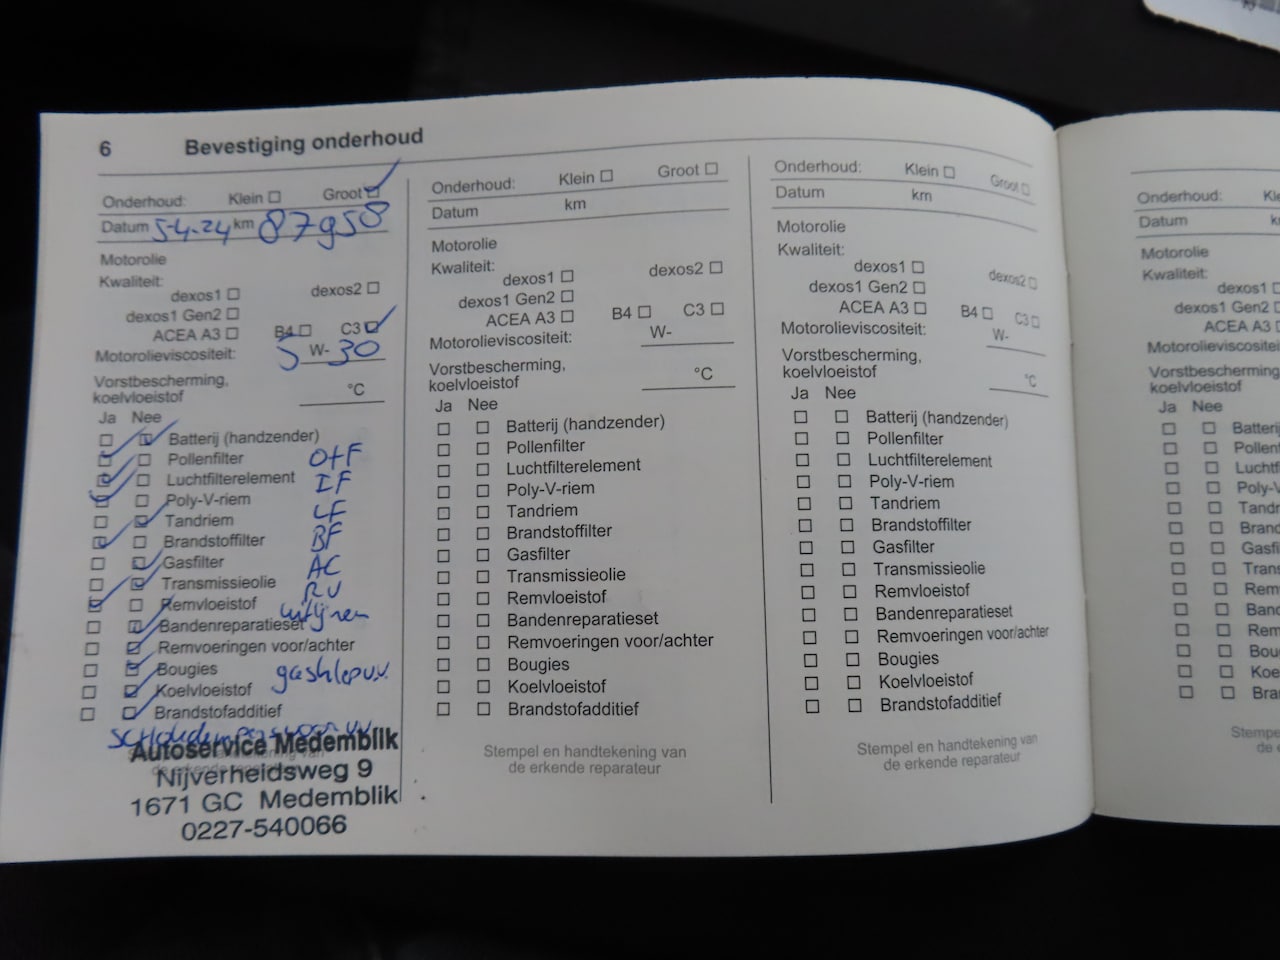 6 Bevestiging onderhoud
Onderhoud: Klein ☐ Groot ☑
Datum 5-4-24 km 87958
Motorolie
Kwaliteit:
dexos1 ☐ dexos2 ☐
dexos1 Gen2 ☐
ACEA A3 ☐ B4 ☐ C3 ☑
Motorolieviscositeit: 5 W- 30
Vorstbescherming,
koelvloeistof °C
Ja Nee
☐ ☑ Batterij (handzender)
☑ ☐ Pollenfilter O+F
☑ ☐ Luchtfilterelement IF
☑ ☐ Poly-V-riem LF
☐ ☑ Tandriem
☑ ☐ Brandstoffilter BF
☐ ☑ Gasfilter AC
☐ ☑ Transmissieolie RV
☑ ☐ Remvloeistof uitlijnen
☐ ☑ Bandenreparatieset
☐ ☑ Remvoeringen voor/achter
☐ ☑ Bougies
☐ ☑ Koelvloeistof
☐ ☑ Brandstofadditief
Autoservice Medemblik
Nijverheidsweg 9
1671 GC Medemblik
0227-540066
Onderhoud: Klein ☐ Groot ☐
Datum km
Motorolie
Kwaliteit:
dexos1 ☐ dexos2 ☐
dexos1 Gen2 ☐
ACEA A3 ☐ B4 ☐ C3 ☐
Motorolieviscositeit: W-
Vorstbescherming,
koelvloeistof °C
Ja Nee
☐ ☐ Batterij (handzender)
☐ ☐ Pollenfilter
☐ ☐ Luchtfilterelement
☐ ☐ Poly-V-riem
☐ ☐ Tandriem
☐ ☐ Brandstoffilter
☐ ☐ Gasfilter
☐ ☐ Transmissieolie
☐ ☐ Remvloeistof
☐ ☐ Bandenreparatieset
☐ ☐ Remvoeringen voor/achter
☐ ☐ Bougies
☐ ☐ Koelvloeistof
☐ ☐ Brandstofadditief
Stempel en handtekening van
de erkende reparateur
Onderhoud: Klein ☐ Groot ☐
Datum km
Motorolie
Kwaliteit:
dexos1 ☐ dexos2 ☐
dexos1 Gen2 ☐
ACEA A3 ☐ B4 ☐ C3 ☐
Motorolieviscositeit: W-
Vorstbescherming,
koelvloeistof °C
Ja Nee
☐ ☐ Batterij (handzender)
☐ ☐ Pollenfilter
☐ ☐ Luchtfilterelement
☐ ☐ Poly-V-riem
☐ ☐ Tandriem
☐ ☐ Brandstoffilter
☐ ☐ Gasfilter
☐ ☐ Transmissieolie
☐ ☐ Remvloeistof
☐ ☐ Bandenreparatieset
☐ ☐ Remvoeringen voor/achter
☐ ☐ Bougies
☐ ☐ Koelvloeistof
☐ ☐ Brandstofadditief
Stempel en handtekening van
de erkende reparateur
Onderhoud:
Datum
Motorolie
Kwaliteit:
dexos1 ☐
dexos1 Gen2
ACEA A3
Vorstbescherming,
koelvloeistof
Ja Nee